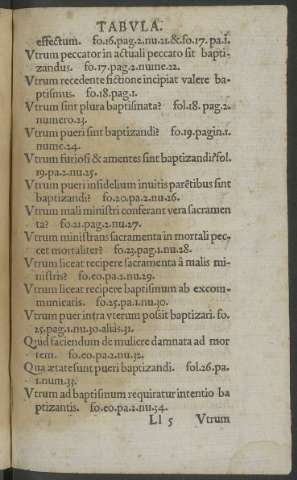 TABVLA.
effectum. fo.16.pag.2.nu.21.&.fo.17.pa.1.
Vtrum peccator in actuali peccato sit bapti-
zandus. fo.17.pag.2.nume.22.
Vtrum recedente fictione incipiat valere ba-
ptismus. fo.18.pag.1.
Vtrum sint plura baptismata? fol.18.pag.2.
numero.23.
Vtrum pueri sint baptizandi? fo.19.pagin.1.
nume.24.
Vtrum furiosi & amentes sint baptizandi? fol.
19.pa.2.nu.25.
Vtrum pueri infidelium inuitis parẽtibus sint
baptizandi? fo.20.pa.2.nu.26.
Vtrum mali ministri conferant vera sacramen
ta? fo.21.pag.2.nu.27.
Vtrum ministrans sacramenta in mortali pec-
cet mortaliter? fo.23.pag.1.nu.28.
Vtrum liceat recipere sacramenta à malis mi-
nistris? fo.eo.pa.2.nu.29.
Vtrum liceat recipere baptismum ab excom-
municatis. fo.25.pa.1.nu.30.
Vtrum puer intra vterum possit baptizari. fo.
25.pag.1.nu.30.aliàs.31.
Quid faciendum de muliere damnata ad mor
tem. fo.eo.pa.2.nu.32.
Qua ætate sunt pueri baptizandi. fol.26.pa.
1.num.33.
Vtrum ad baptismum requiratur intentio ba
ptizantis. fo.eo.pa.2.nu.34.
Ll 5 Vtrum